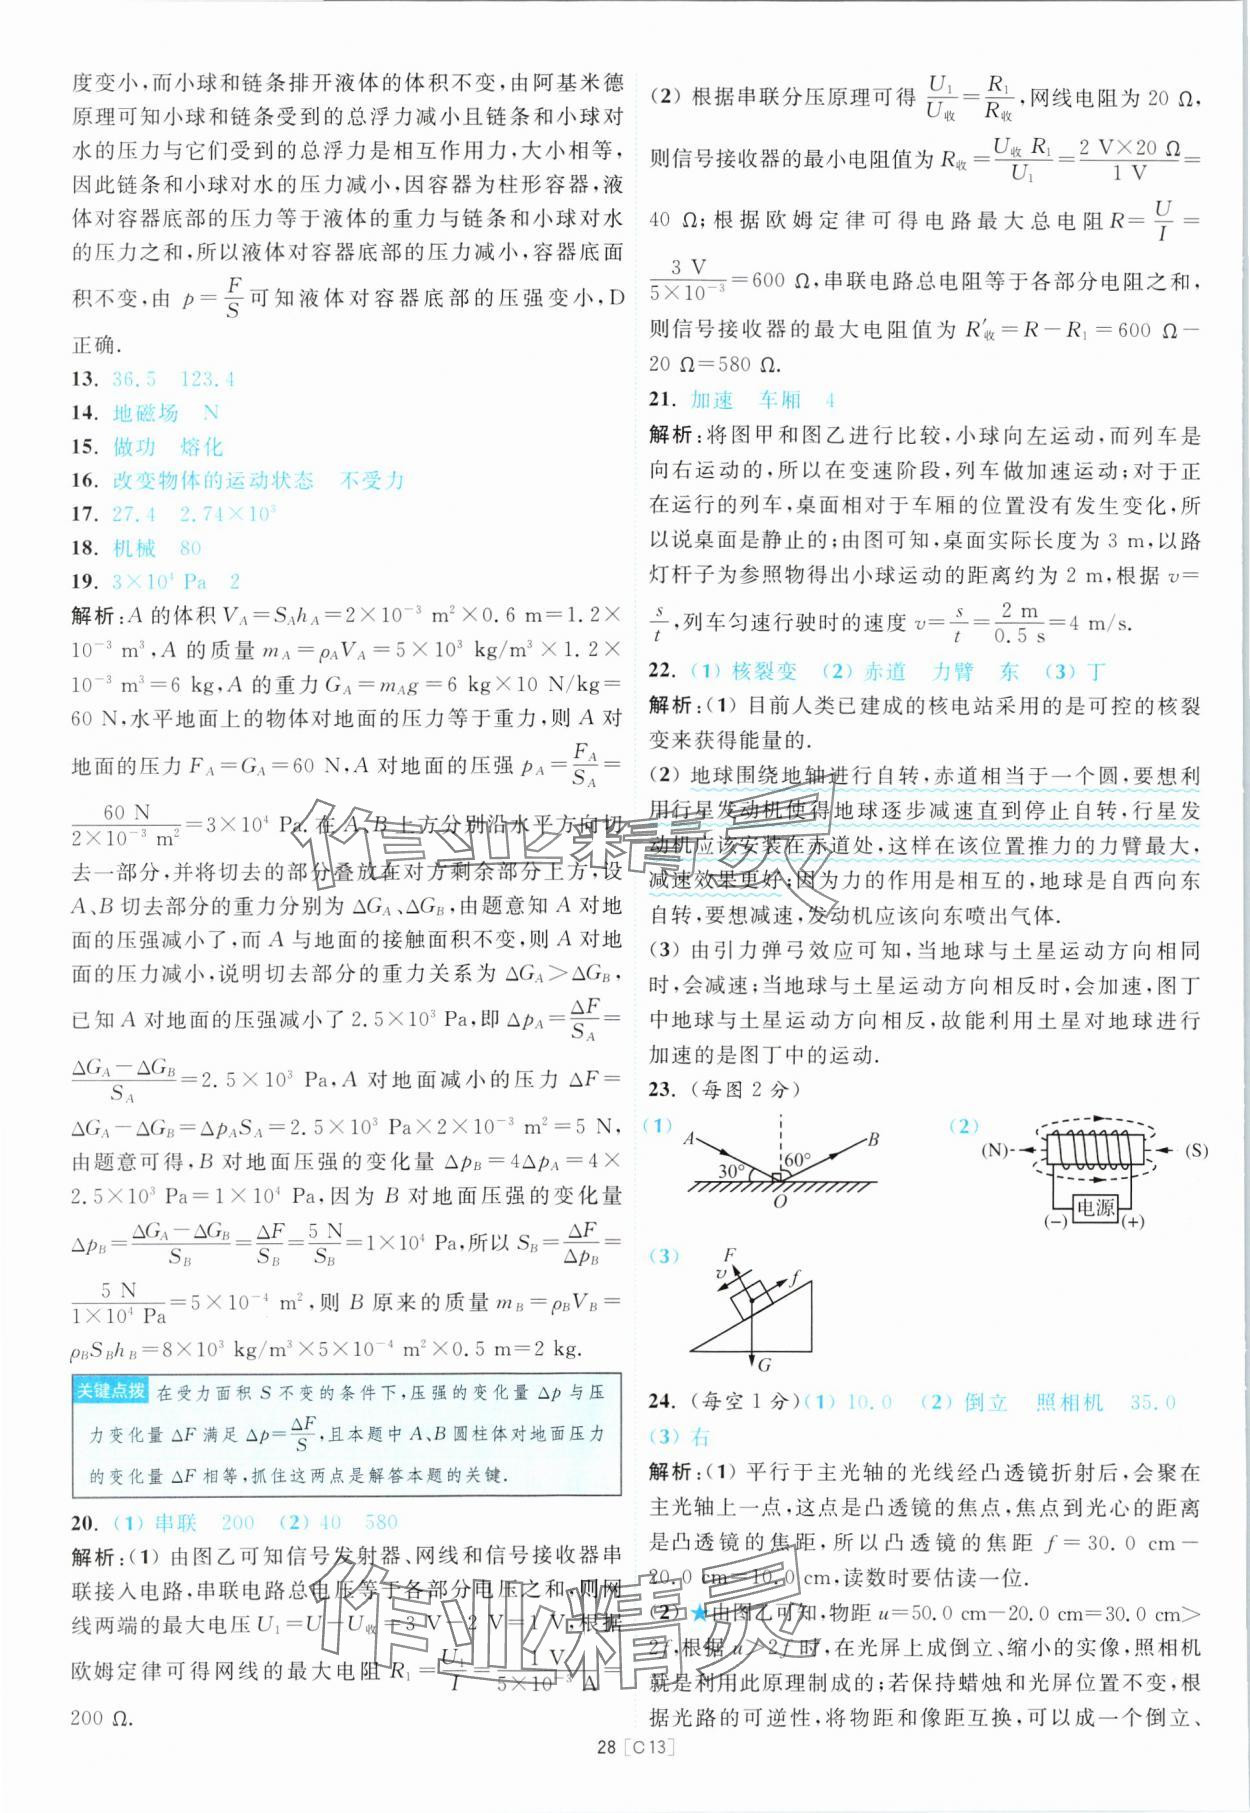 度变小,而小球和链条排开液体的体积不变,由阿基米德
原理可知小球和链条受到的总浮力减小且链条和小球对
水的压力与它们受到的总浮力是相互作用力,大小相等,
因此链条和小球对水的压力减小,因容器为柱形容器,液
体对容器底部的压力等于液体的重力与链条和小球对水
的压力之和,所以液体对容器底部的压力减小,容器底面
积不变,由 p=F/S可知液体对容器底部的压强变小,D
正确.
13. 36.5 123.4
14. 地磁场 N
15. 做功 熔化
16. 改变物体的运动状态 不受力
17. 27.4 2.74×10³
18. 机械 80
19. 3×10⁴ Pa 2
解析:A 的体积 V_A=S_Ah_A=2×10⁻³ m²×0.6 m=1.2×
10⁻³ m³,A 的质量 m_A=ρ_AV_A=5×10³ kg/m³×1.2×
10⁻³ m³=6 kg,A 的重力 G_A=m_Ag=6 kg×10 N/kg=
60 N,水平地面上的物体对地面的压力等于重力,则 A 对
地面的压力 F_A=G_A=60 N,A 对地面的压强 p_A=F_A/S_A=
60 N/(2×10⁻³ m²)=3×10⁴ Pa.在 A、B 上方分别沿水平方向切
去一部分,并将切去的部分叠放在对方剩余部分上方,设
A、B 切去部分的重力分别为 ΔG_A、ΔG_B,由题意知 A 对地
面的压强减小了,而 A 与地面的接触面积不变,则 A 对地
面的压力减小,说明切去部分的重力关系为 ΔG_A>ΔG_B,
已知 A 对地面的压强减小了 2.5×10³ Pa,即 Δp_A=ΔF/S_A=
(ΔG_A-ΔG_B)/S_A=2.5×10³ Pa,A 对地面减小的压力 ΔF=
ΔG_A-ΔG_B=Δp_AS_A=2.5×10³ Pa×2×10⁻³ m²=5 N,
由题意可得,B 对地面压强的变化量 Δp_B=4Δp_A=4×
2.5×10³ Pa=1×10⁴ Pa,因为 B 对地面压强的变化量
Δp_B=(ΔG_A-ΔG_B)/S_B=ΔF/S_B=5 N/S_B=1×10⁴ Pa,所以 S_B=ΔF/Δp_B=
5 N/(1×10⁴ Pa)=5×10⁻⁴ m²,则 B 原来的质量 m_B=ρ_BV_B=
ρ_BS_Bh_B=8×10³ kg/m³×5×10⁻⁴ m²×0.5 m=2 kg.
关键点拨 在受力面积 S 不变的条件下,压强的变化量 Δp 与压
力变化量 ΔF 满足 Δp=ΔF/S,且本题中 A、B 圆柱体对地面压力
的变化量 ΔF 相等,抓住这两点是解答本题的关键.
20. (1) 串联 200 (2) 40 580
解析:(1) 由图乙可知信号发射器、网线和信号接收器串
联接入电路,串联电路总电压等于各部分电压之和,则网
线两端的最大电压 U₁=U-U收=3 V-2 V=1 V,根据
欧姆定律可得网线的最大电阻 R₁=U₁/I=1 V/(5×10⁻³ A)=
200 Ω.
(2) 根据串联分压原理可得 U₁/U收=R₁/R收,网线电阻为 20 Ω,
则信号接收器的最小电阻值为 R收=U收R₁/U₁=(2 V×20 Ω)/1 V=
40 Ω;根据欧姆定律可得电路最大总电阻 R=U/I=
3 V/(5×10⁻³)=600 Ω,串联电路总电阻等于各部分电阻之和,
则信号接收器的最大电阻值为 R′收=R-R₁=600 Ω-
20 Ω=580 Ω.
21. 加速 车厢 4
解析:将图甲和图乙进行比较,小球向左运动,而列车是
向右运动的,所以在变速阶段,列车做加速运动;对于正
在运行的列车,桌面相对于车厢的位置没有发生变化,所
以说桌面是静止的;由图可知,桌面实际长度为 3 m,以路
灯杆子为参照物得出小球运动的距离约为 2 m,根据 v=
s/t,列车匀速行驶时的速度 v=s/t=2 m/0.5 s=4 m/s.
22. (1) 核裂变 (2) 赤道 力臂 东 (3) 丁
解析:(1) 目前人类已建成的核电站采用的是可控的核裂
变来获得能量的.
(2) 地球围绕地轴进行自转,赤道相当于一个圆,要想利
用行星发动机使得地球逐步减速直到停止自转,行星发
动机应该安装在赤道处,这样在该位置推力的力臂最大,
减速效果更好;因为力的作用是相互的,地球是自西向东
自转,要想减速,发动机应该向东喷出气体.
(3) 由引力弹弓效应可知,当地球与土星运动方向相同
时,会减速;当地球与土星运动方向相反时,会加速,图丁
中地球与土星运动方向相反,故能利用土星对地球进行
加速的是图丁中的运动.
23. (每图 2 分)
(1) A B 30° 60° O
(2) (N) (S) 电源 (-) (+)
(3) F v f G
24. (每空 1 分)(1) 10.0 (2) 倒立 照相机 35.0
(3) 右
解析:(1) 平行于主光轴的光线经凸透镜折射后,会聚在
主光轴上一点,这点是凸透镜的焦点,焦点到光心的距离
是凸透镜的焦距,所以凸透镜的焦距 f=30.0 cm-
20.0 cm=10.0 cm,读数时要估读一位.
(2) ★由图乙可知,物距 u=50.0 cm-20.0 cm=30.0 cm>
2f,根据 u>2f 时,在光屏上成倒立、缩小的实像,照相机
就是利用此原理制成的;若保持蜡烛和光屏位置不变,根
据光路的可逆性,将物距和像距互换,可以成一个倒立、
28 [C13]
作业精灵
作业精灵